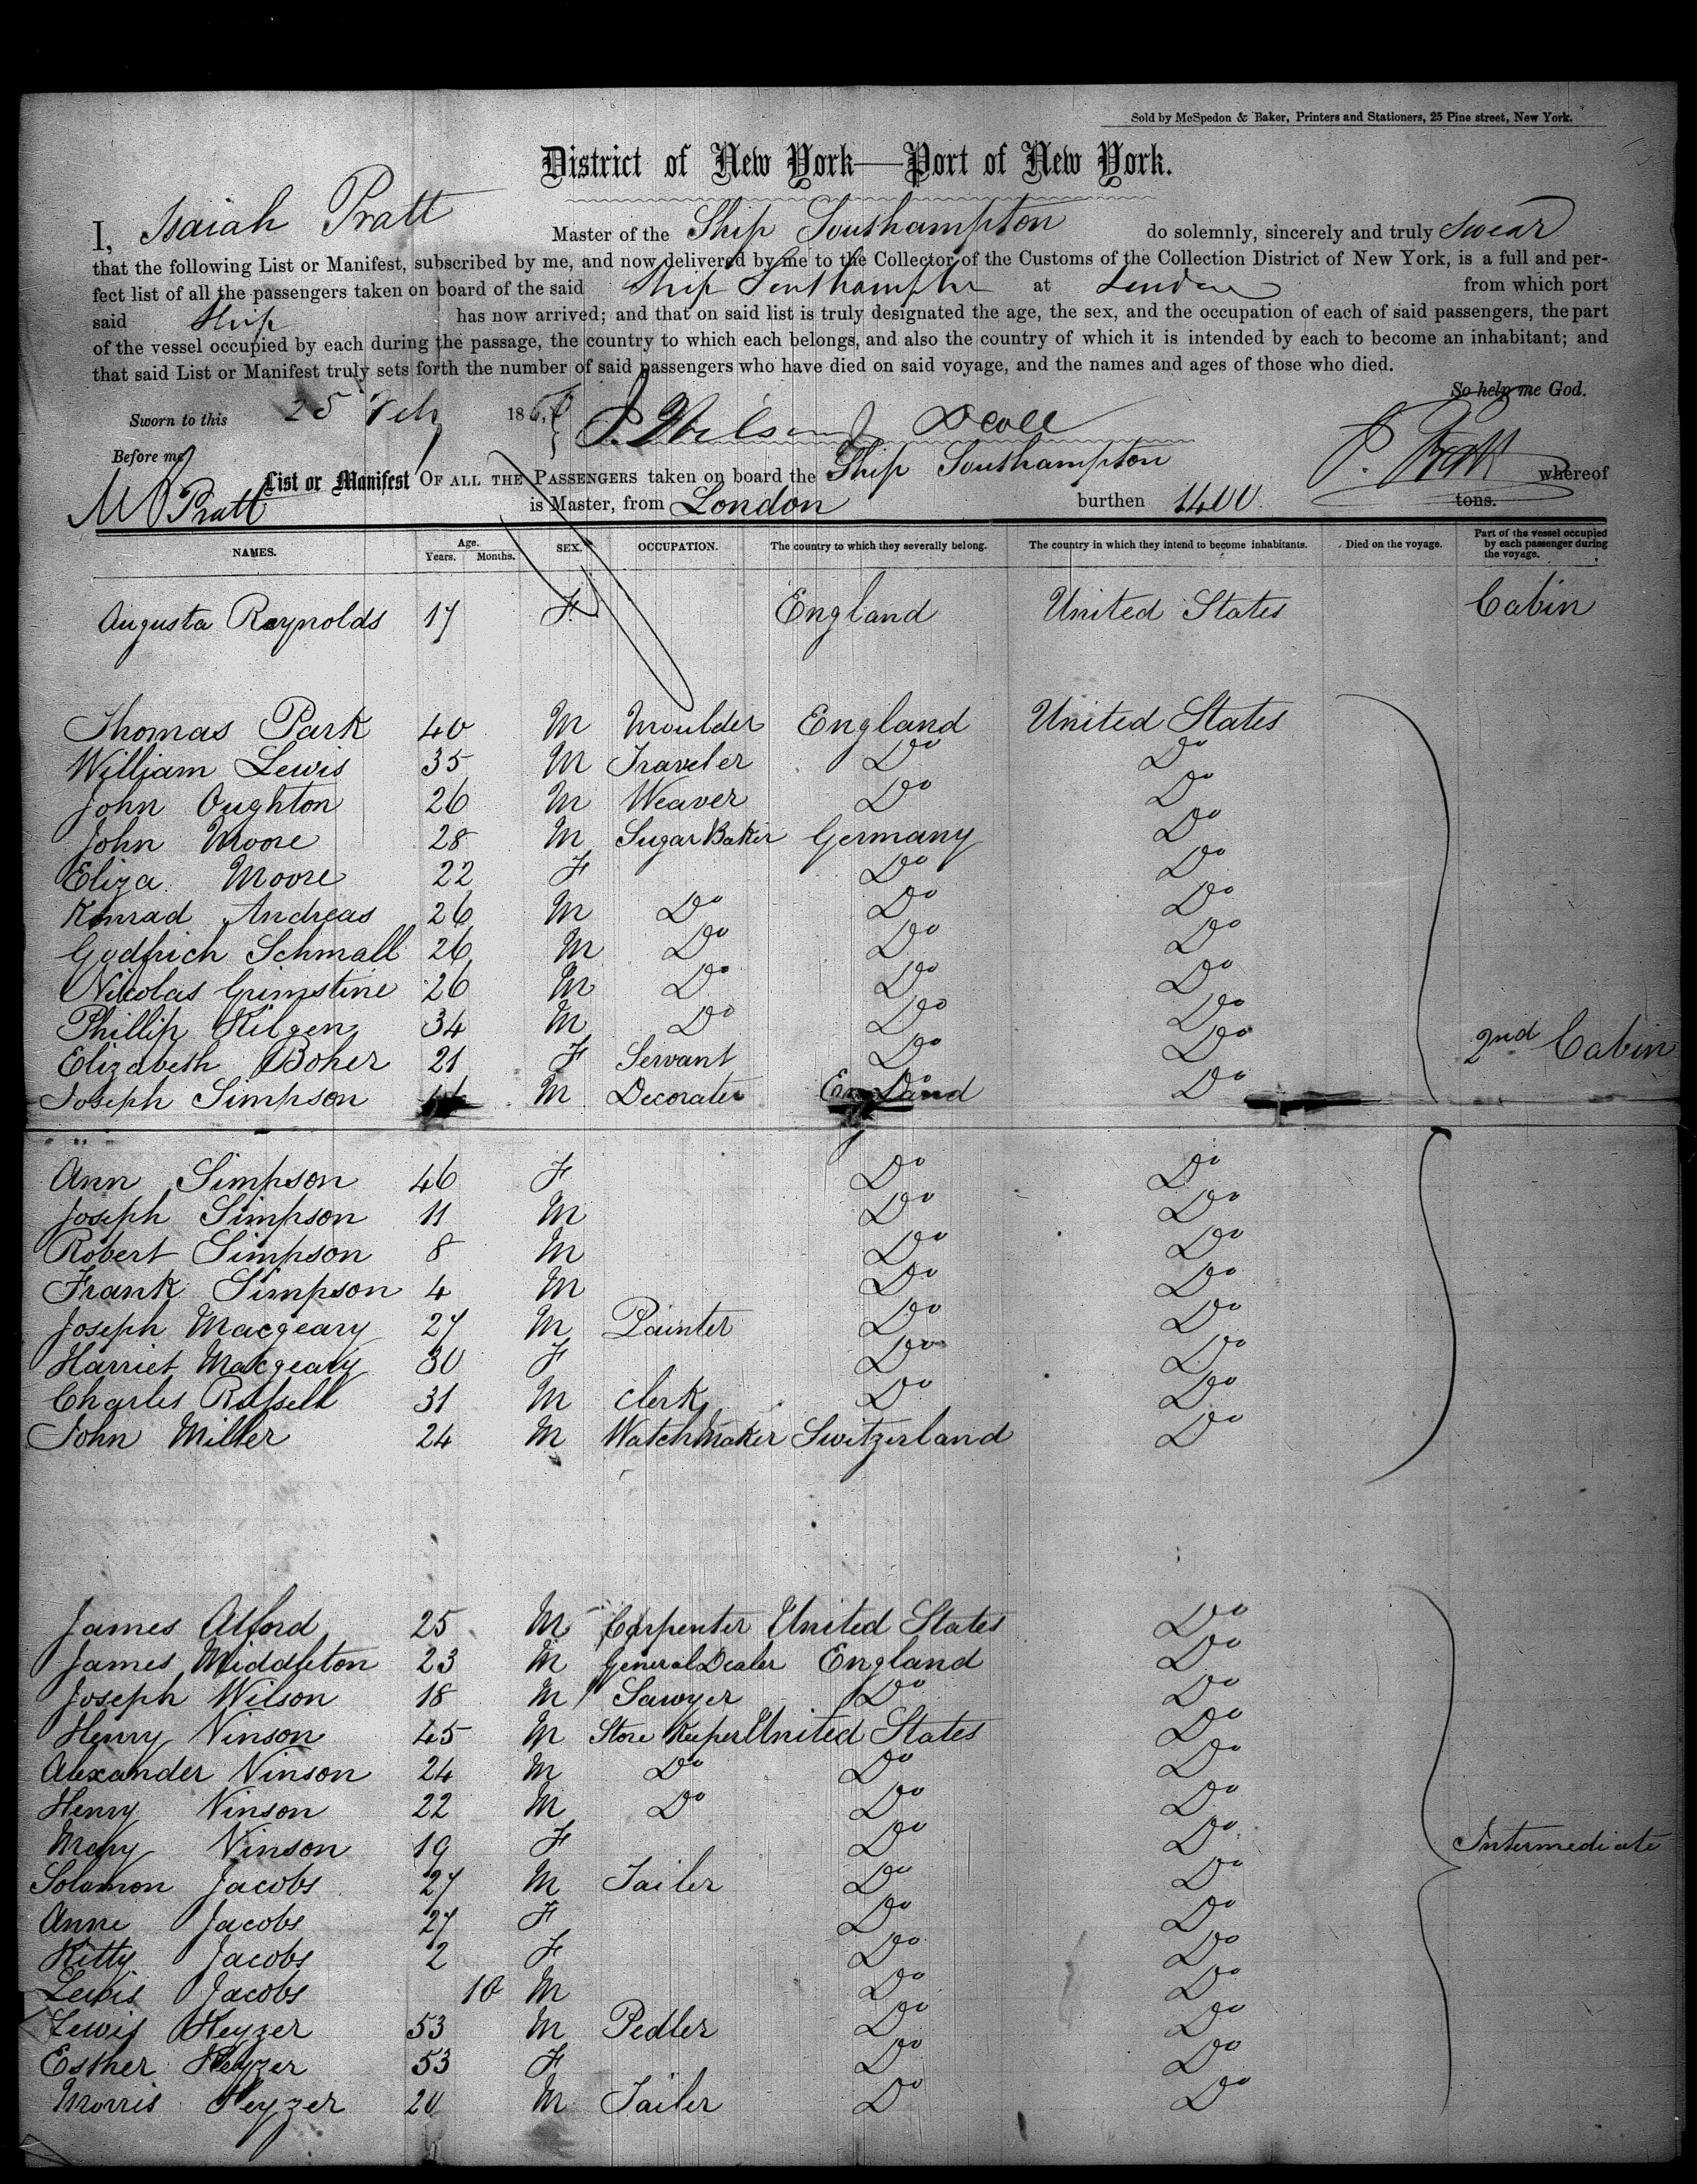 Sold by McSpedon & Baker, Printers and Stationers, 25 Pine street, New York.
District of New York—Port of New York.
I, Isaiah Pratt Master of the Ship Southampton do solemnly, sincerely and truly Swear
that the following List or Manifest, subscribed by me, and now delivered by me to the Collector of the Customs of the Collection District of New York, is a full and per-
fect list of all the passengers taken on board of the said Ship Southampton at London from which port
said Ship has now arrived; and that on said list is truly designated the age, the sex, and the occupation of each of said passengers, the part
of the vessel occupied by each during the passage, the country to which each belongs, and also the country of which it is intended by each to become an inhabitant; and
that said List or Manifest truly sets forth the number of said passengers who have died on said voyage, and the names and ages of those who died.
So help me God.
Sworn to this 25 Feb 186
Before me
List or Manifest OF ALL THE PASSENGERS taken on board the Ship Southampton I. Pratt whereof
Pratt is Master, from London burthen 1400 tons.
NAMES. Age. Years. Months. SEX. OCCUPATION. The country to which they severally belong. The country in which they intend to become inhabitants. Died on the voyage. Part of the vessel occupied by each passenger during the voyage.
Augusta Raynolds 17 F. England United States Cabin
Thomas Park 40 M Moulder England United States
William Lewis 35 M Traveler Do Do
John Oughton 26 M Weaver Do Do
John Moore 28 M Sugar Baker Germany Do
Eliza Moore 22 F Do Do
Konrad Andreas 26 M Do Do Do
Godfrich Schmall 26 M Do Do Do
Nikolas Grimstine 26 M Do Do Do
Phillip Hilgen 34 M Do Do Do
Elizabeth Boher 21 F Servant Do Do 2nd Cabin
Joseph Simpson M Decorater England Do
Ann Simpson 46 F Do Do
Joseph Simpson 11 M Do Do
Robert Simpson 8 M Do Do
Frank Simpson 4 M Do Do
Joseph Macgeary 27 M Painter Do Do
Harriet Macgeary 30 F Do Do
Charles Russell 31 M Clerk Do Do
John Miller 24 M Watch Maker Switzerland Do
James Alford 25 M Carpenter United States Do
James Middleton 23 M General Dealer England Do
Joseph Wilson 18 M Sawyer Do Do
Henry Vinson 45 M Store Keeper United States Do
Alexander Vinson 24 M Do Do Do
Henry Vinson 22 M Do Do Do
Mary Vinson 19 F Do Do Intermediate
Solomon Jacobs 27 M Tailer Do Do
Anne Jacobs 27 F Do Do
Kitty Jacobs 2 F Do Do
Lewis Jacobs 10 M Do Do
Lewis Heyzer 53 M Pedler Do Do
Esther Heyzer 53 F Do Do
Morris Heyzer 20 M Tailer Do Do